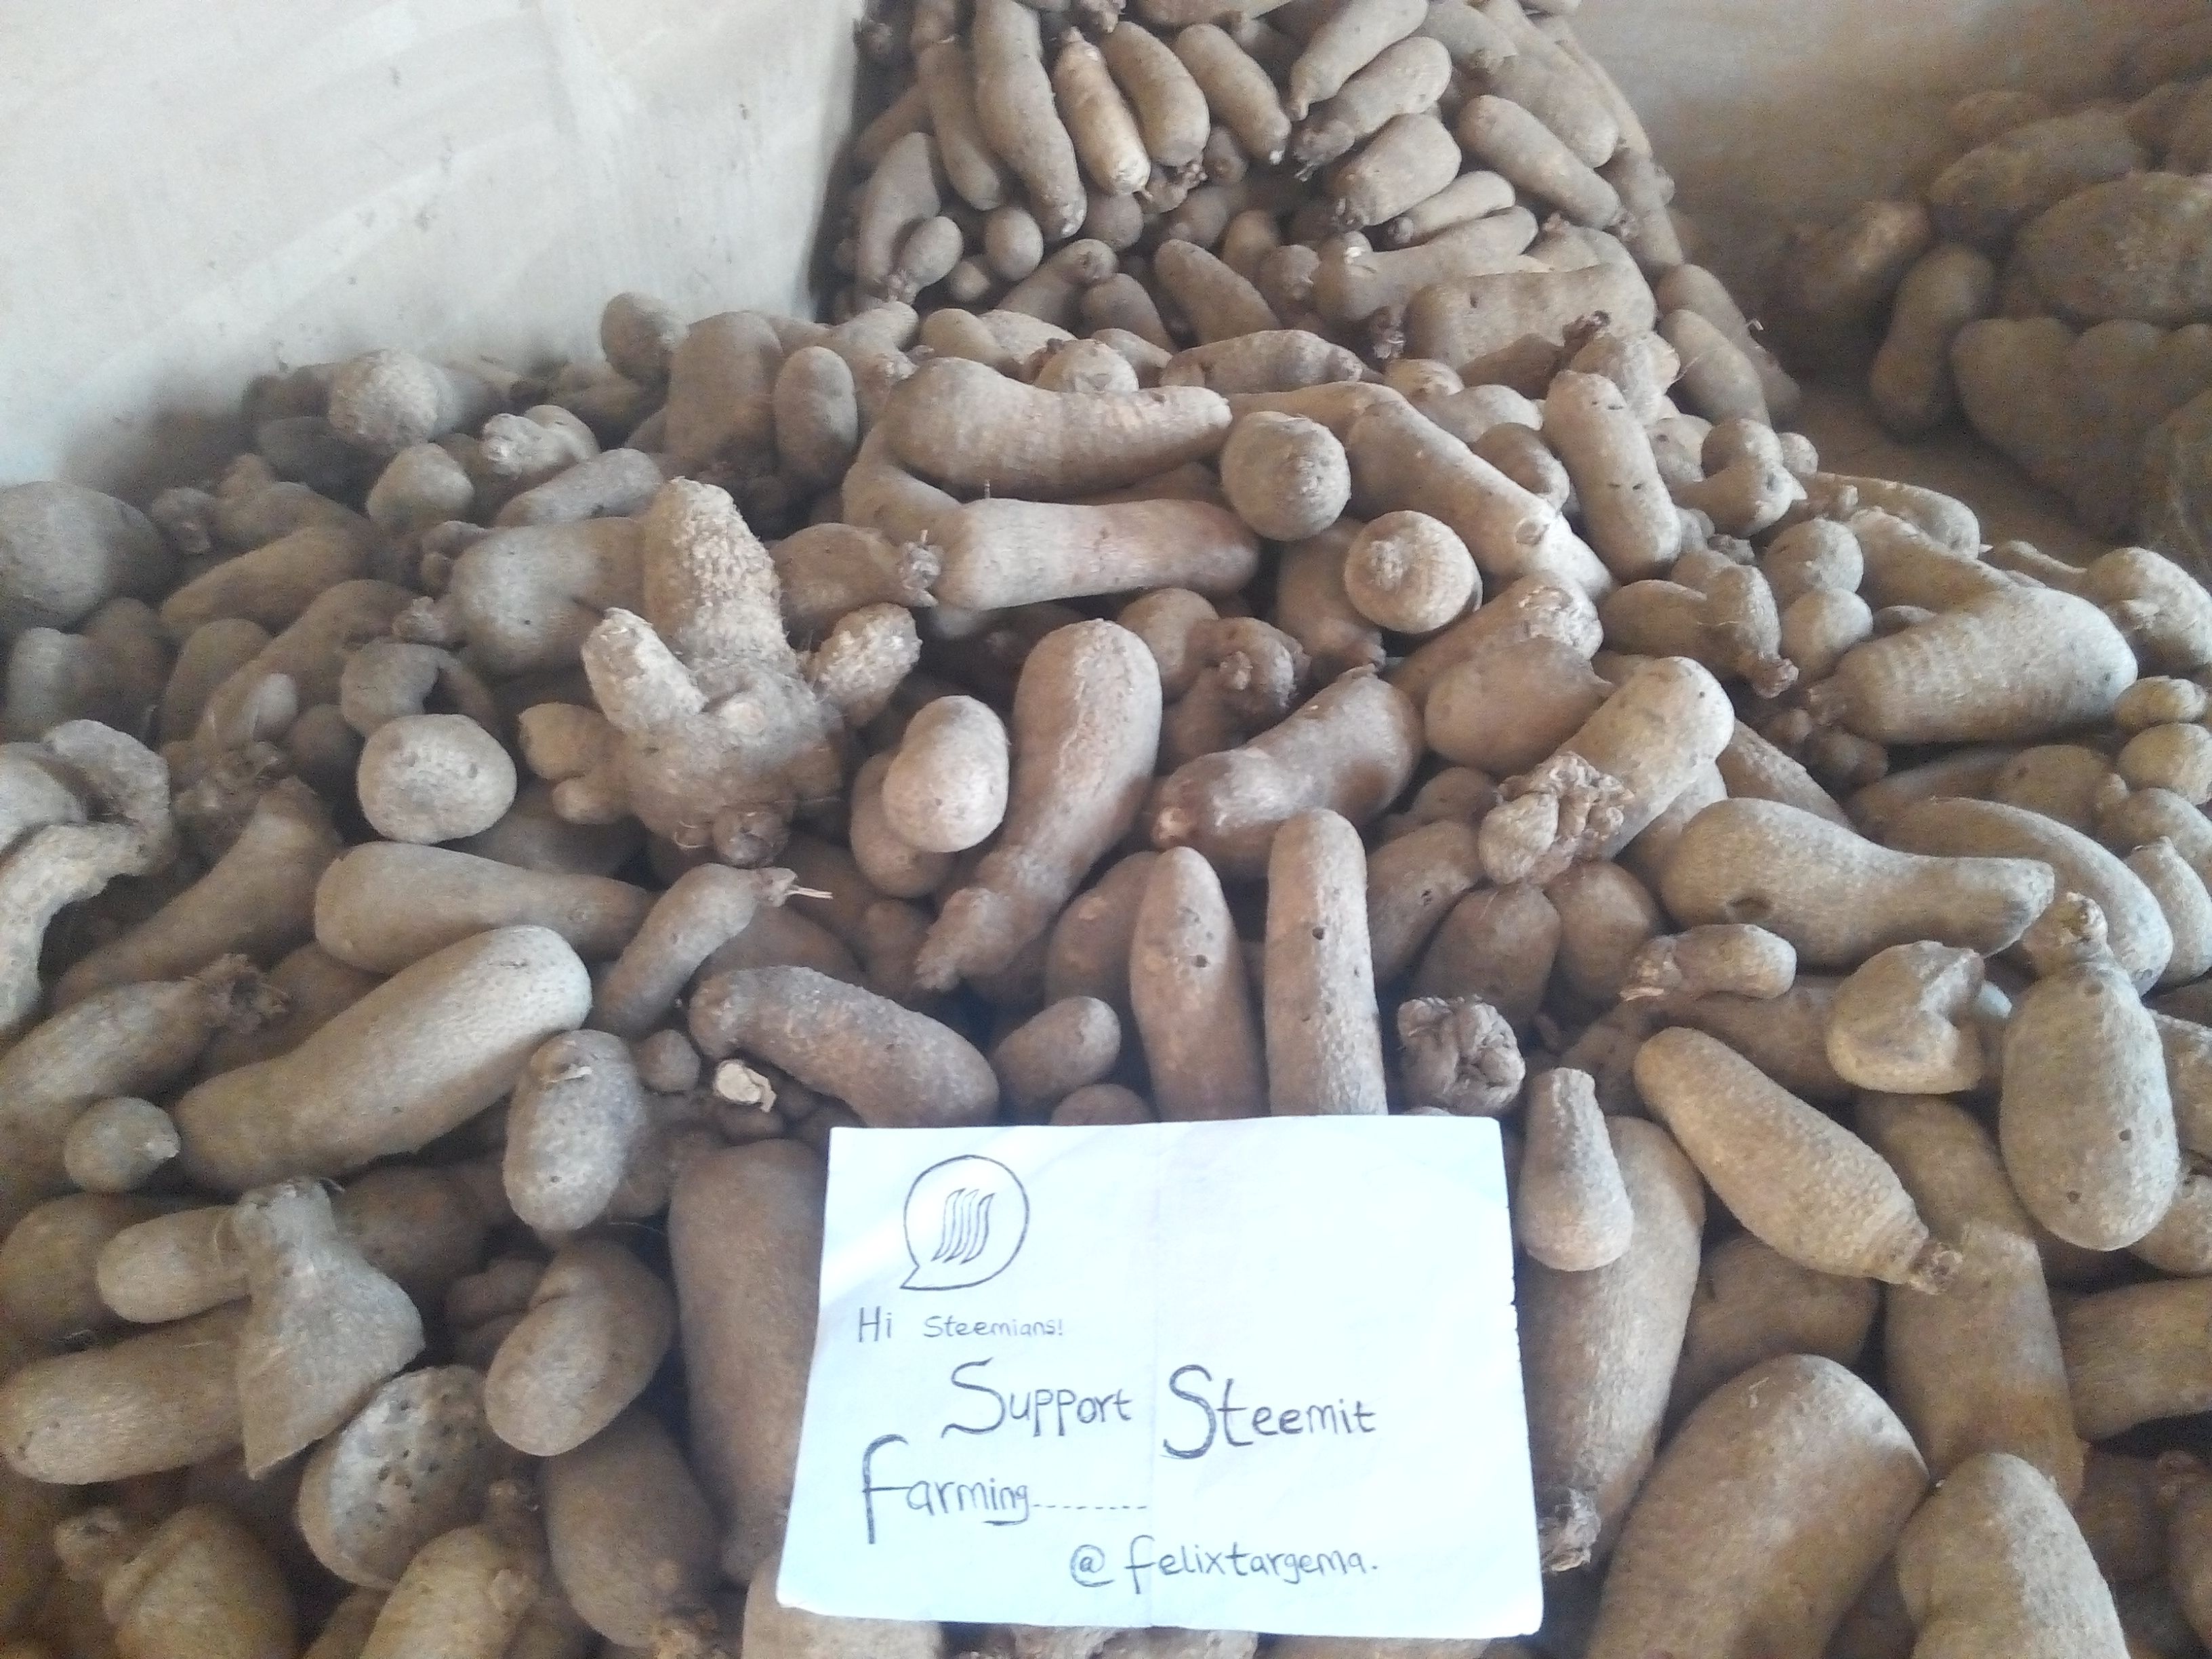 Hi Steemians!
Support Steemit
Farming........
@felixtargema.